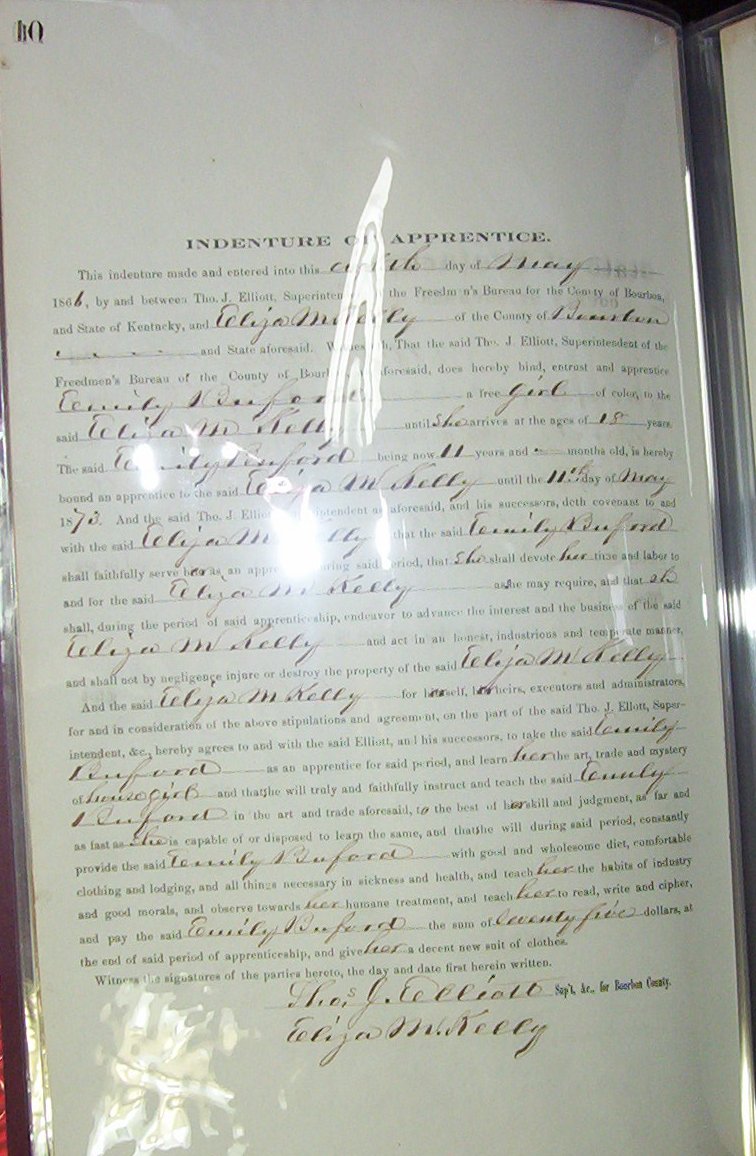 40
INDENTURE OF APPRENTICE.
This indenture made and entered into this day of May
1866, by and between Tho. J. Elliott, Superintendent the Freedmen's Bureau for the County of Bourbon,
and State of Kentucky, and Eliza M Kelly of the County of Bourbon
and State aforesaid. Witnesseth, That the said Tho. J. Elliott, Superintendent of the
Freedmen's Bureau of the County of Bourbon aforesaid, does hereby bind, entrust and apprentice
Emily Buford a free girl of color, to the
said Eliza M Kelly until She arrives at the ages of 18 years.
The said Emily Buford being now 11 years and months old, is hereby
bound an apprentice to the said Eliza M Kelly until the 11th day of May
1873. And the said Tho. J. Elliott, Superintendent as aforesaid, and his successors, doth covenant to and
with the said Eliza M Kelly that the said Emily Buford
shall faithfully serve her as an apprentice during said period, that She shall devote her time and labor to
and for the said Eliza M Kelly as she may require, and that sh
shall, during the period of said apprenticeship, endeavor to advance the interest and the business of the said
Eliza M Kelly and act in an honest, industrious and temperate manner,
and shall not by negligence injure or destroy the property of the said Eliza M Kelly
And the said Eliza M Kelly for herself, her heirs, executors and administrators,
for and in consideration of the above stipulations and agreement, on the part of the said Tho. J. Ellott, Super-
intendent, &c., hereby agrees to and with the said Elliott, and his successors, to take the said Emily
Buford as an apprentice for said period, and learn her the art, trade and mystery
of house girl and that she will truly and faithfully instruct and teach the said Emily
Buford in the art and trade aforesaid, to the best of her skill and judgment, as far and
as fast as She is capable of or disposed to learn the same, and that she will during said period, constantly
provide the said Emily Buford with good and wholesome diet, comfortable
clothing and lodging, and all things necessary in sickness and health, and teach her the habits of industry
and good morals, and observe towards her humane treatment, and teach her to read, write and cipher,
and pay the said Emily Buford the sum of Seventy five dollars, at
the end of said period of apprenticeship, and give her a decent new suit of clothes.
Witness the signatures of the parties hereto, the day and date first herein written.
Thos J. Elliott Sup't, &c., for Bourbon County.
Eliza M. Kelly